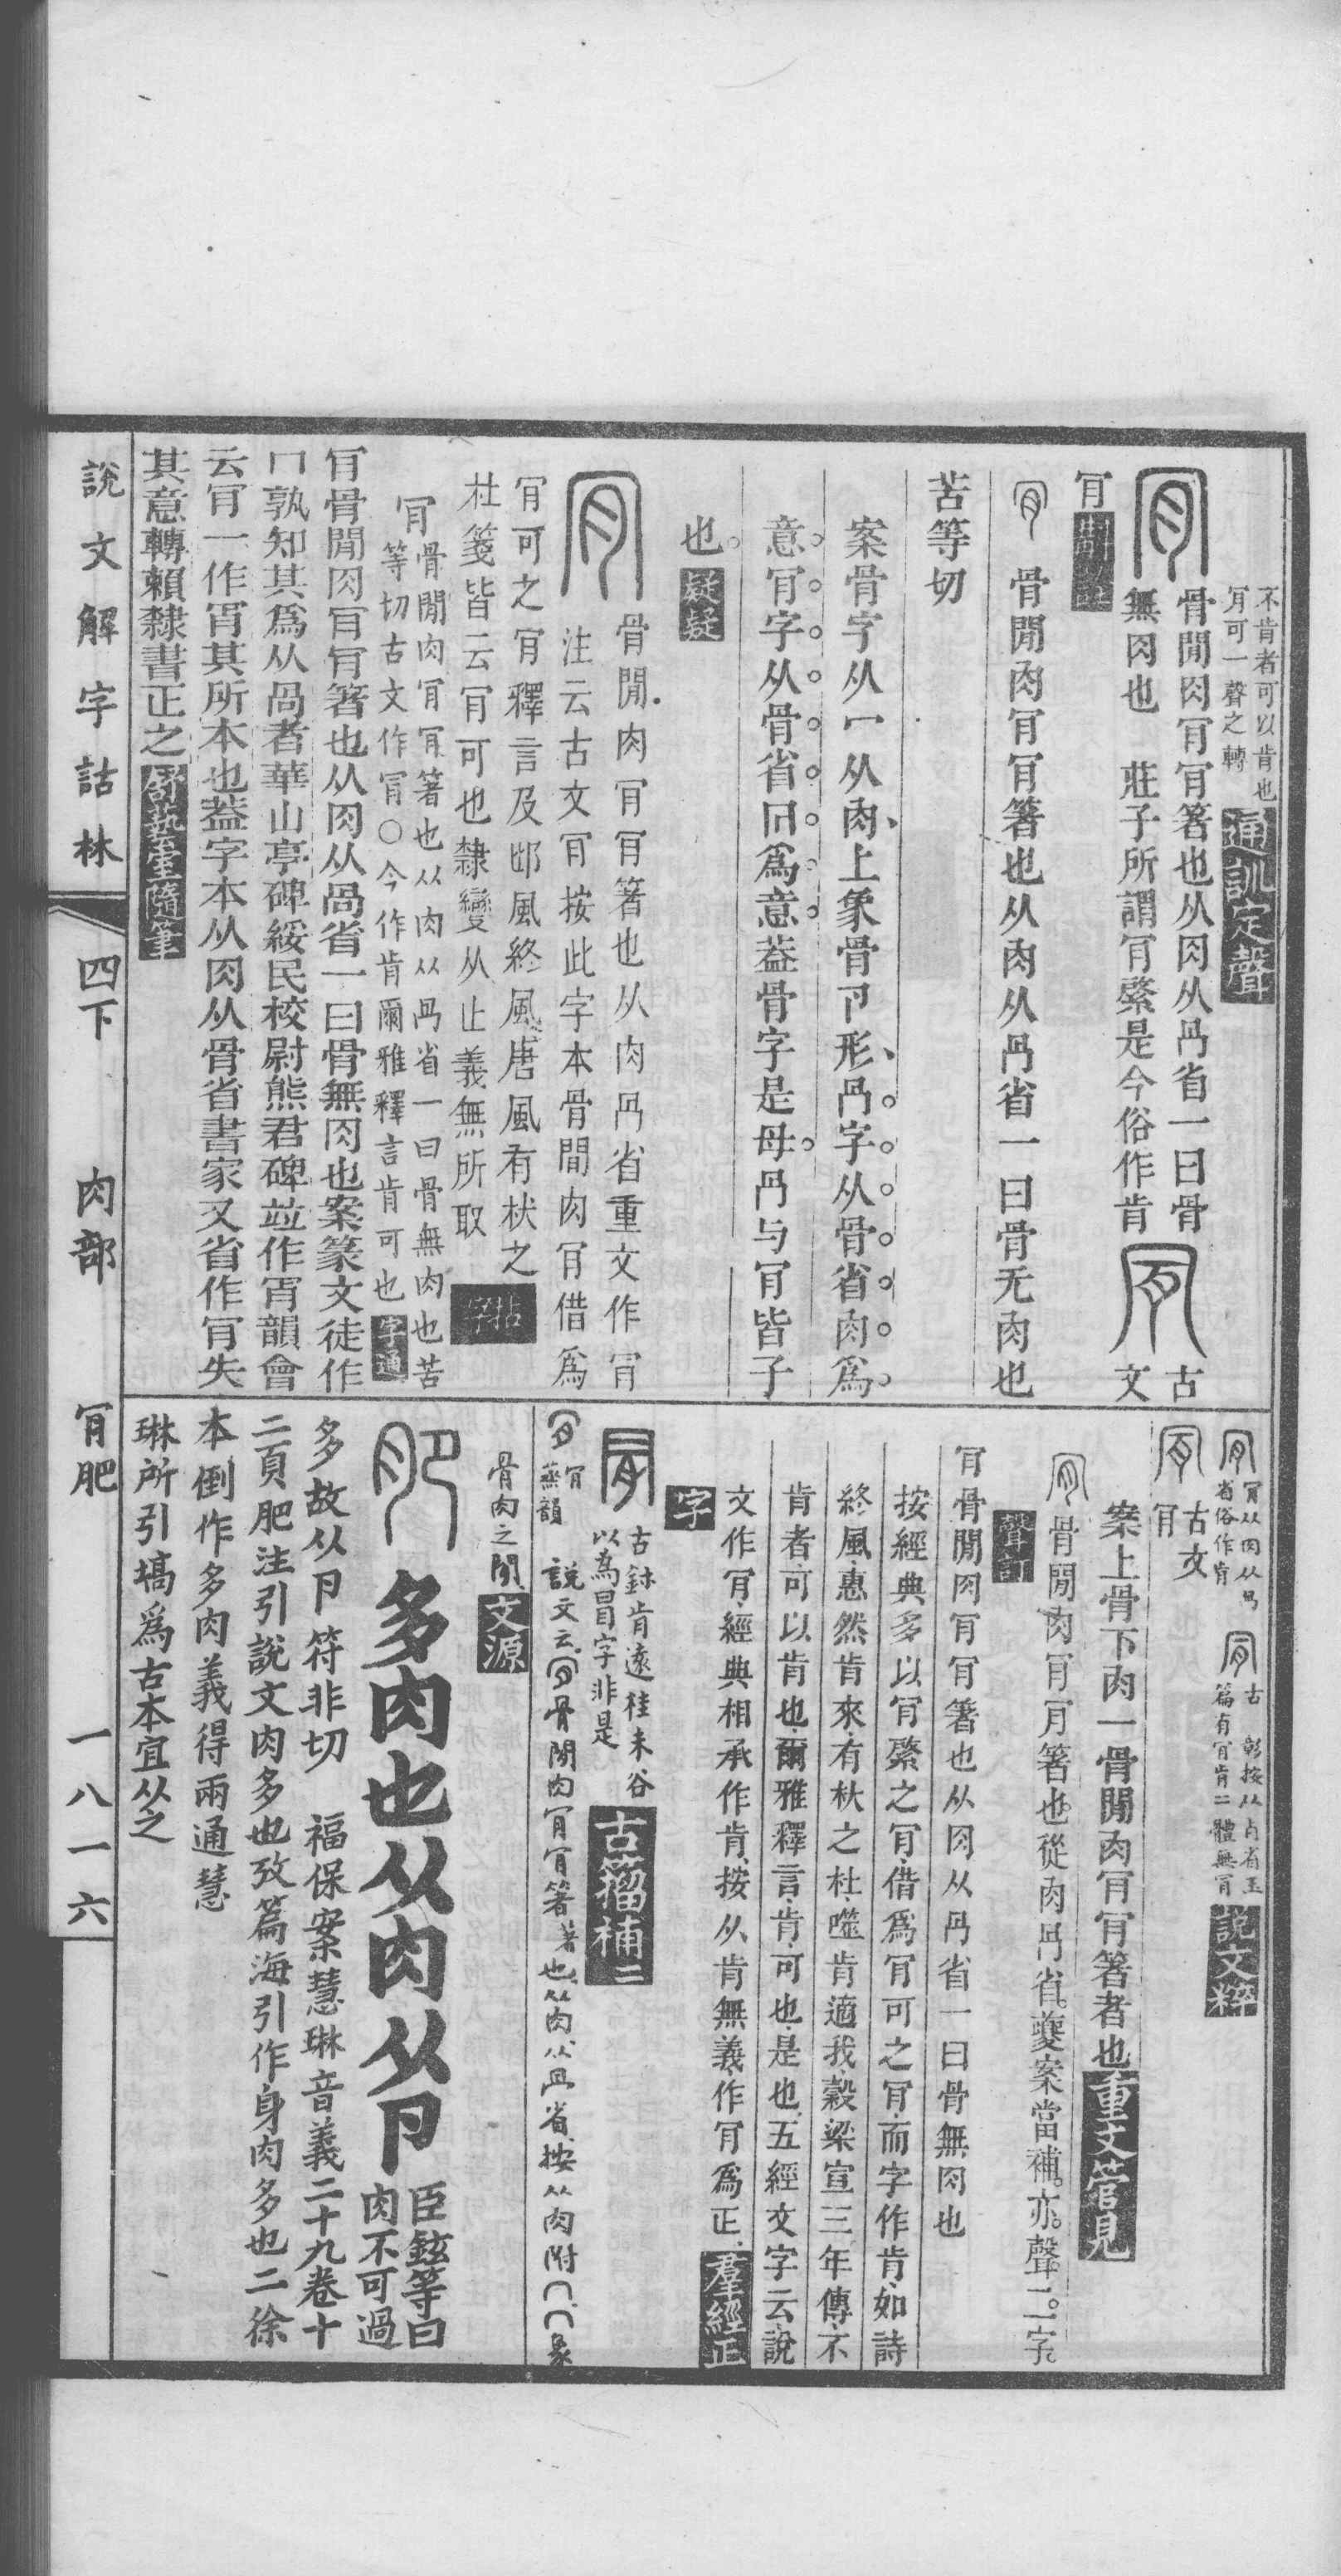 不肯者可以肯也
肎可一聲之轉
通訓定聲
骨閒肉肎肎箸也从肉从冎省一曰骨
無肉也 莊子所謂肎綮是今俗作肯
古
文
肎
骨閒肉肎肎箸也从肉从冎省一曰骨无肉也
苦等切
案骨字从冖从肉上象骨卪形冎字从骨省肉爲
意肎字从骨省冃爲意葢骨字是母冎与肎皆子
也
疑疑
骨閒肉肎肎箸也从肉冎省重文作肎
注云古文肎按此字本骨間肉肎借爲
肎可之肎釋言及邶風終風唐風有杕之
杜箋皆云肎可也隸變从止義無所取
拈字
肎
骨閒肉肎肎箸也从肉从冎省一曰骨無肉也苦
等切古文作肎○今作肯爾雅釋言肯可也
字通
肎骨閒肉肎肎箸也从肉从咼省一曰骨無肉也案篆文徒作
冂孰知其爲从咼者華山亭碑綏民校尉熊君碑竝作肎韻會
云肎一作肎其所本也葢字本从肉从骨省書家又省作肎失
其意轉賴隸書正之
舒藝室隨筆
肎从肉从冎
省俗作肯
古 彰按从肉省玉
篇有肎肯二體無肎
說文粹
古文
肎
案上骨下肉一骨閒肉肎肎箸者也
重文管見
骨閒肉肎肎箸也從肉冎省夔案當補亦聲二字
聲訂
肎骨閒肉肎肎箸也从肉从冎省一曰骨無肉也
按經典多以肎綮之肎借爲肎可之肎而字作肯如詩
終風惠然肯來有杕之杜噬肯適我穀梁宣三年傳不
肯者可以肯也爾雅釋言肯可也是也五經文字云說
文作肎經典相承作肯按从肯無義作肎爲正
羣經正
字
古鉢肯遠桂未谷
以為冒字非是
古籀補二
肎
蒸韻
說文云骨閒肉肎肎箸著也从肉从冎省按从肉附冖冖象
骨肉之閒
文源
多肉也从肉从卪
臣鉉等曰
肉不可過
多故从卪 符非切 福保案慧琳音義二十九卷十
二頁肥注引說文肉多也攷篇海引作身肉多也二徐
本倒作多肉義得兩通慧
琳所引塙爲古本宜从之
說文解字詁林
四下
肉部
肎肥
一八一六